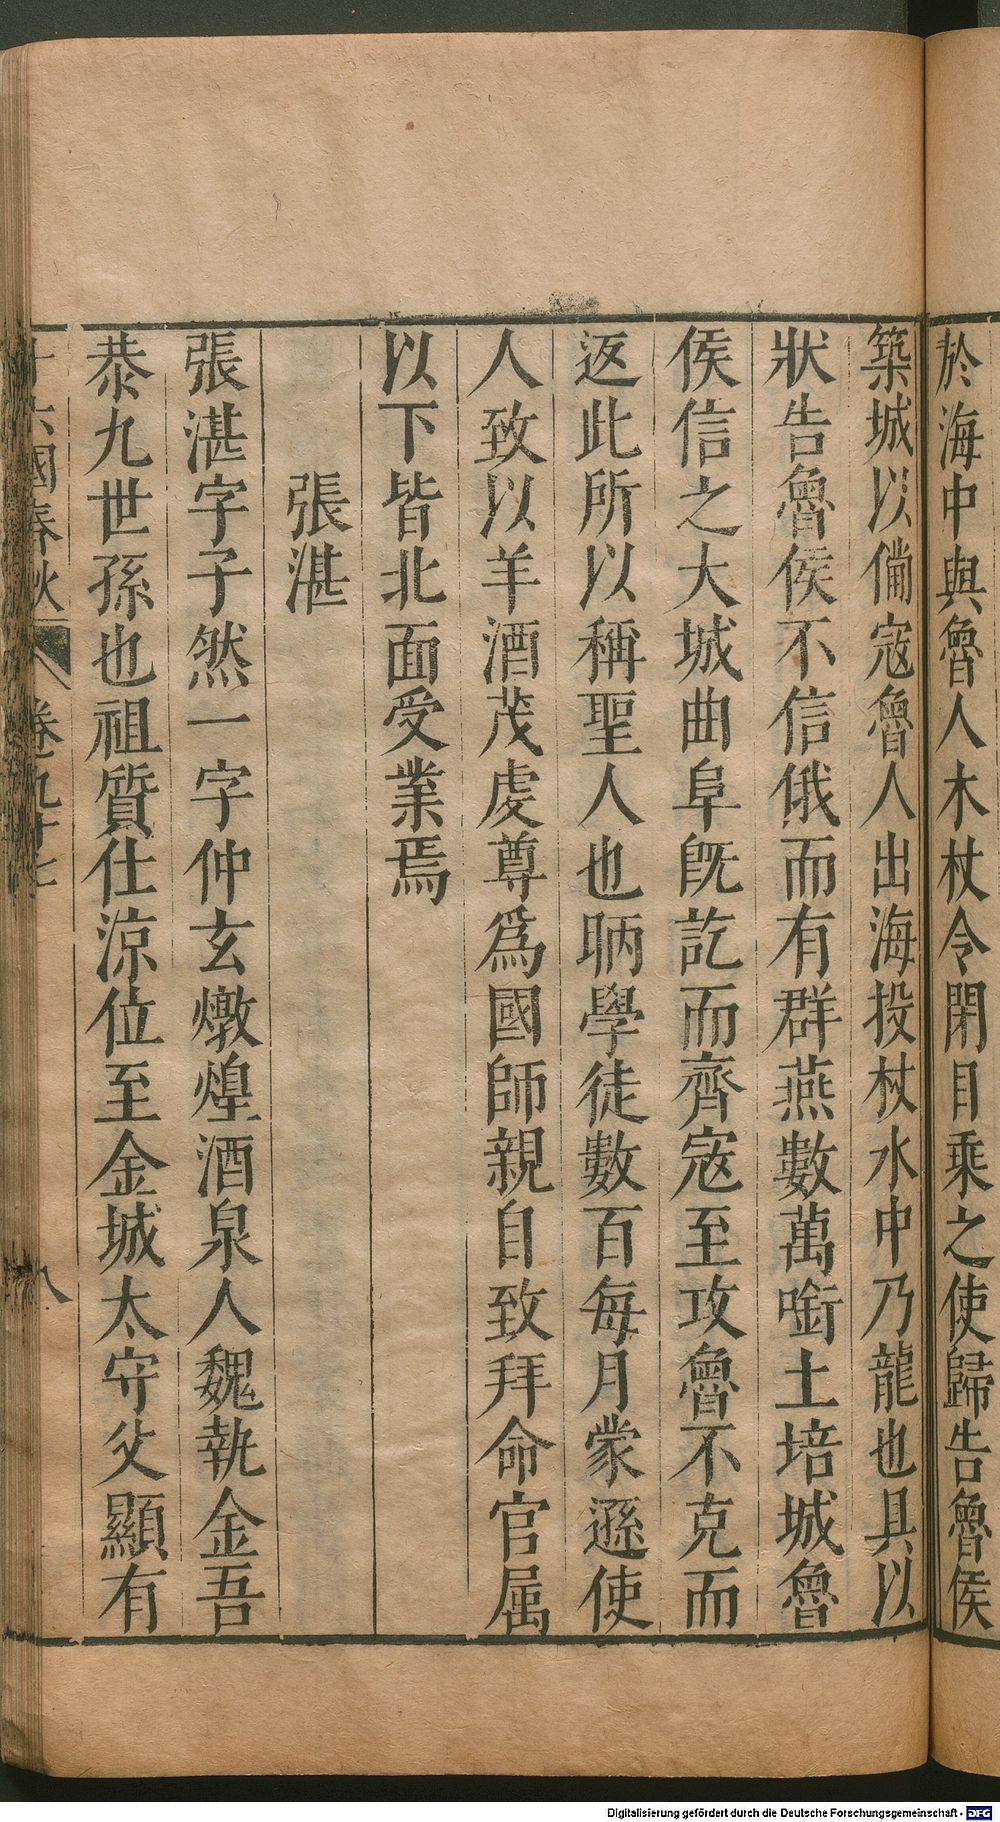 於海中與魯人木杖令閉目乘之使歸告魯侯
築城以僃寇魯人出海投杖水中乃龍也具以
狀告魯侯不信俄而有群燕數萬啣土培城魯
侯信之大城曲阜旣訖而齊寇至攻魯不克而
返此所以稱聖人也昞學徒數百每月蒙遜使
人致以羊酒茂虔尊爲國師親自致拜命官属
以下皆北面受業焉
張湛
張湛字子然一字仲玄燉煌酒泉人魏執金吾
恭九世孫也祖質仕涼位至金城太守父顯有
十六國春秋 卷九十七 八
Digitalisierung gefördert durch die Deutsche Forschungsgemeinschaft - DFG